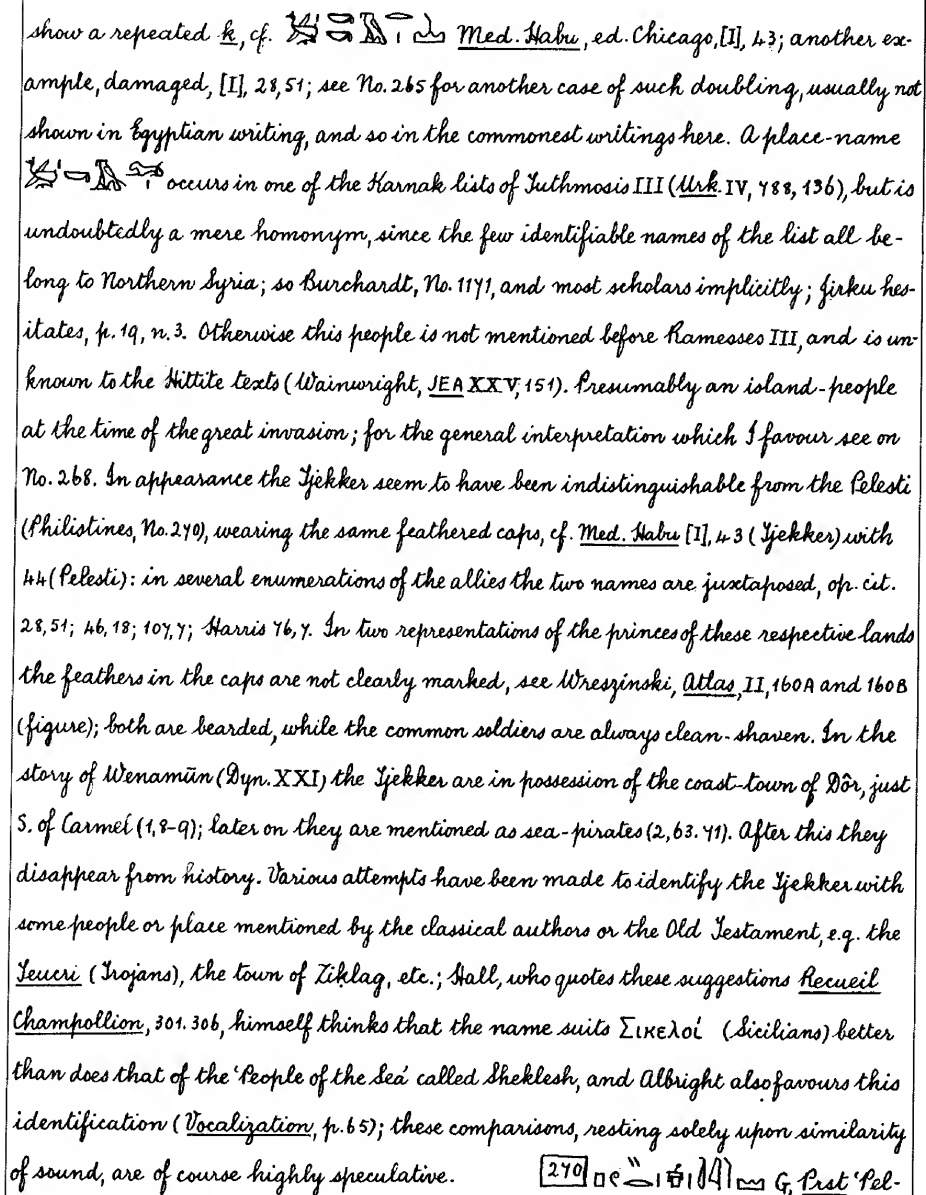 show a repeated k, cf. Med. Habu, ed. Chicago, [I], 43; another ex-
ample, damaged, [I], 28, 51; see No. 265 for another case of such doubling, usually not
shown in Egyptian writing, and so in the commonest writings here. A place-name
occurs in one of the Karnak lists of Tuthmosis III (Urk. IV, 788, 136), but is
undoubtedly a mere homonym, since the few identifiable names of the list all be-
long to Northern Syria; so Burchardt, No. 1171, and most scholars implicitly; Jirku hes-
itates, p. 19, n. 3. Otherwise this people is not mentioned before Ramesses III, and is un-
known to the Hittite texts (Wainwright, JEA XXV, 151). Presumably an island-people
at the time of the great invasion; for the general interpretation which I favour see on
No. 268. In appearance the Tjekker seem to have been indistinguishable from the Pelesti
(Philistines, No. 270), wearing the same feathered caps, cf. Med. Habu [I], 43 (Tjekker) with
44 (Pelesti): in several enumerations of the allies the two names are juxtaposed, op. cit.
28, 51; 46, 18; 107, 7; Harris 76, 7. In two representations of the princes of these respective lands
the feathers in the caps are not clearly marked, see Wreszinski, Atlas, II, 160A and 160B
(figure); both are bearded, while the common soldiers are always clean-shaven. In the
story of Wenamūn (Dyn. XXI) the Tjekker are in possession of the coast-town of Dôr, just
S. of Carmel (1, 8-9); later on they are mentioned as sea-pirates (2, 63. 71). After this they
disappear from history. Various attempts have been made to identify the Tjekker with
some people or place mentioned by the classical authors or the Old Testament, e.g. the
Teucri (Trojans), the town of Ziklag, etc.; Hall, who quotes these suggestions Recueil
Champollion, 301. 306, himself thinks that the name suits Σικελοί (Sicilians) better
than does that of the 'People of the Sea' called Sheklesh, and Albright also favours this
identification (Vocalization, p. 65); these comparisons, resting solely upon similarity
of sound, are of course highly speculative. 270 G, Prst 'Pel-